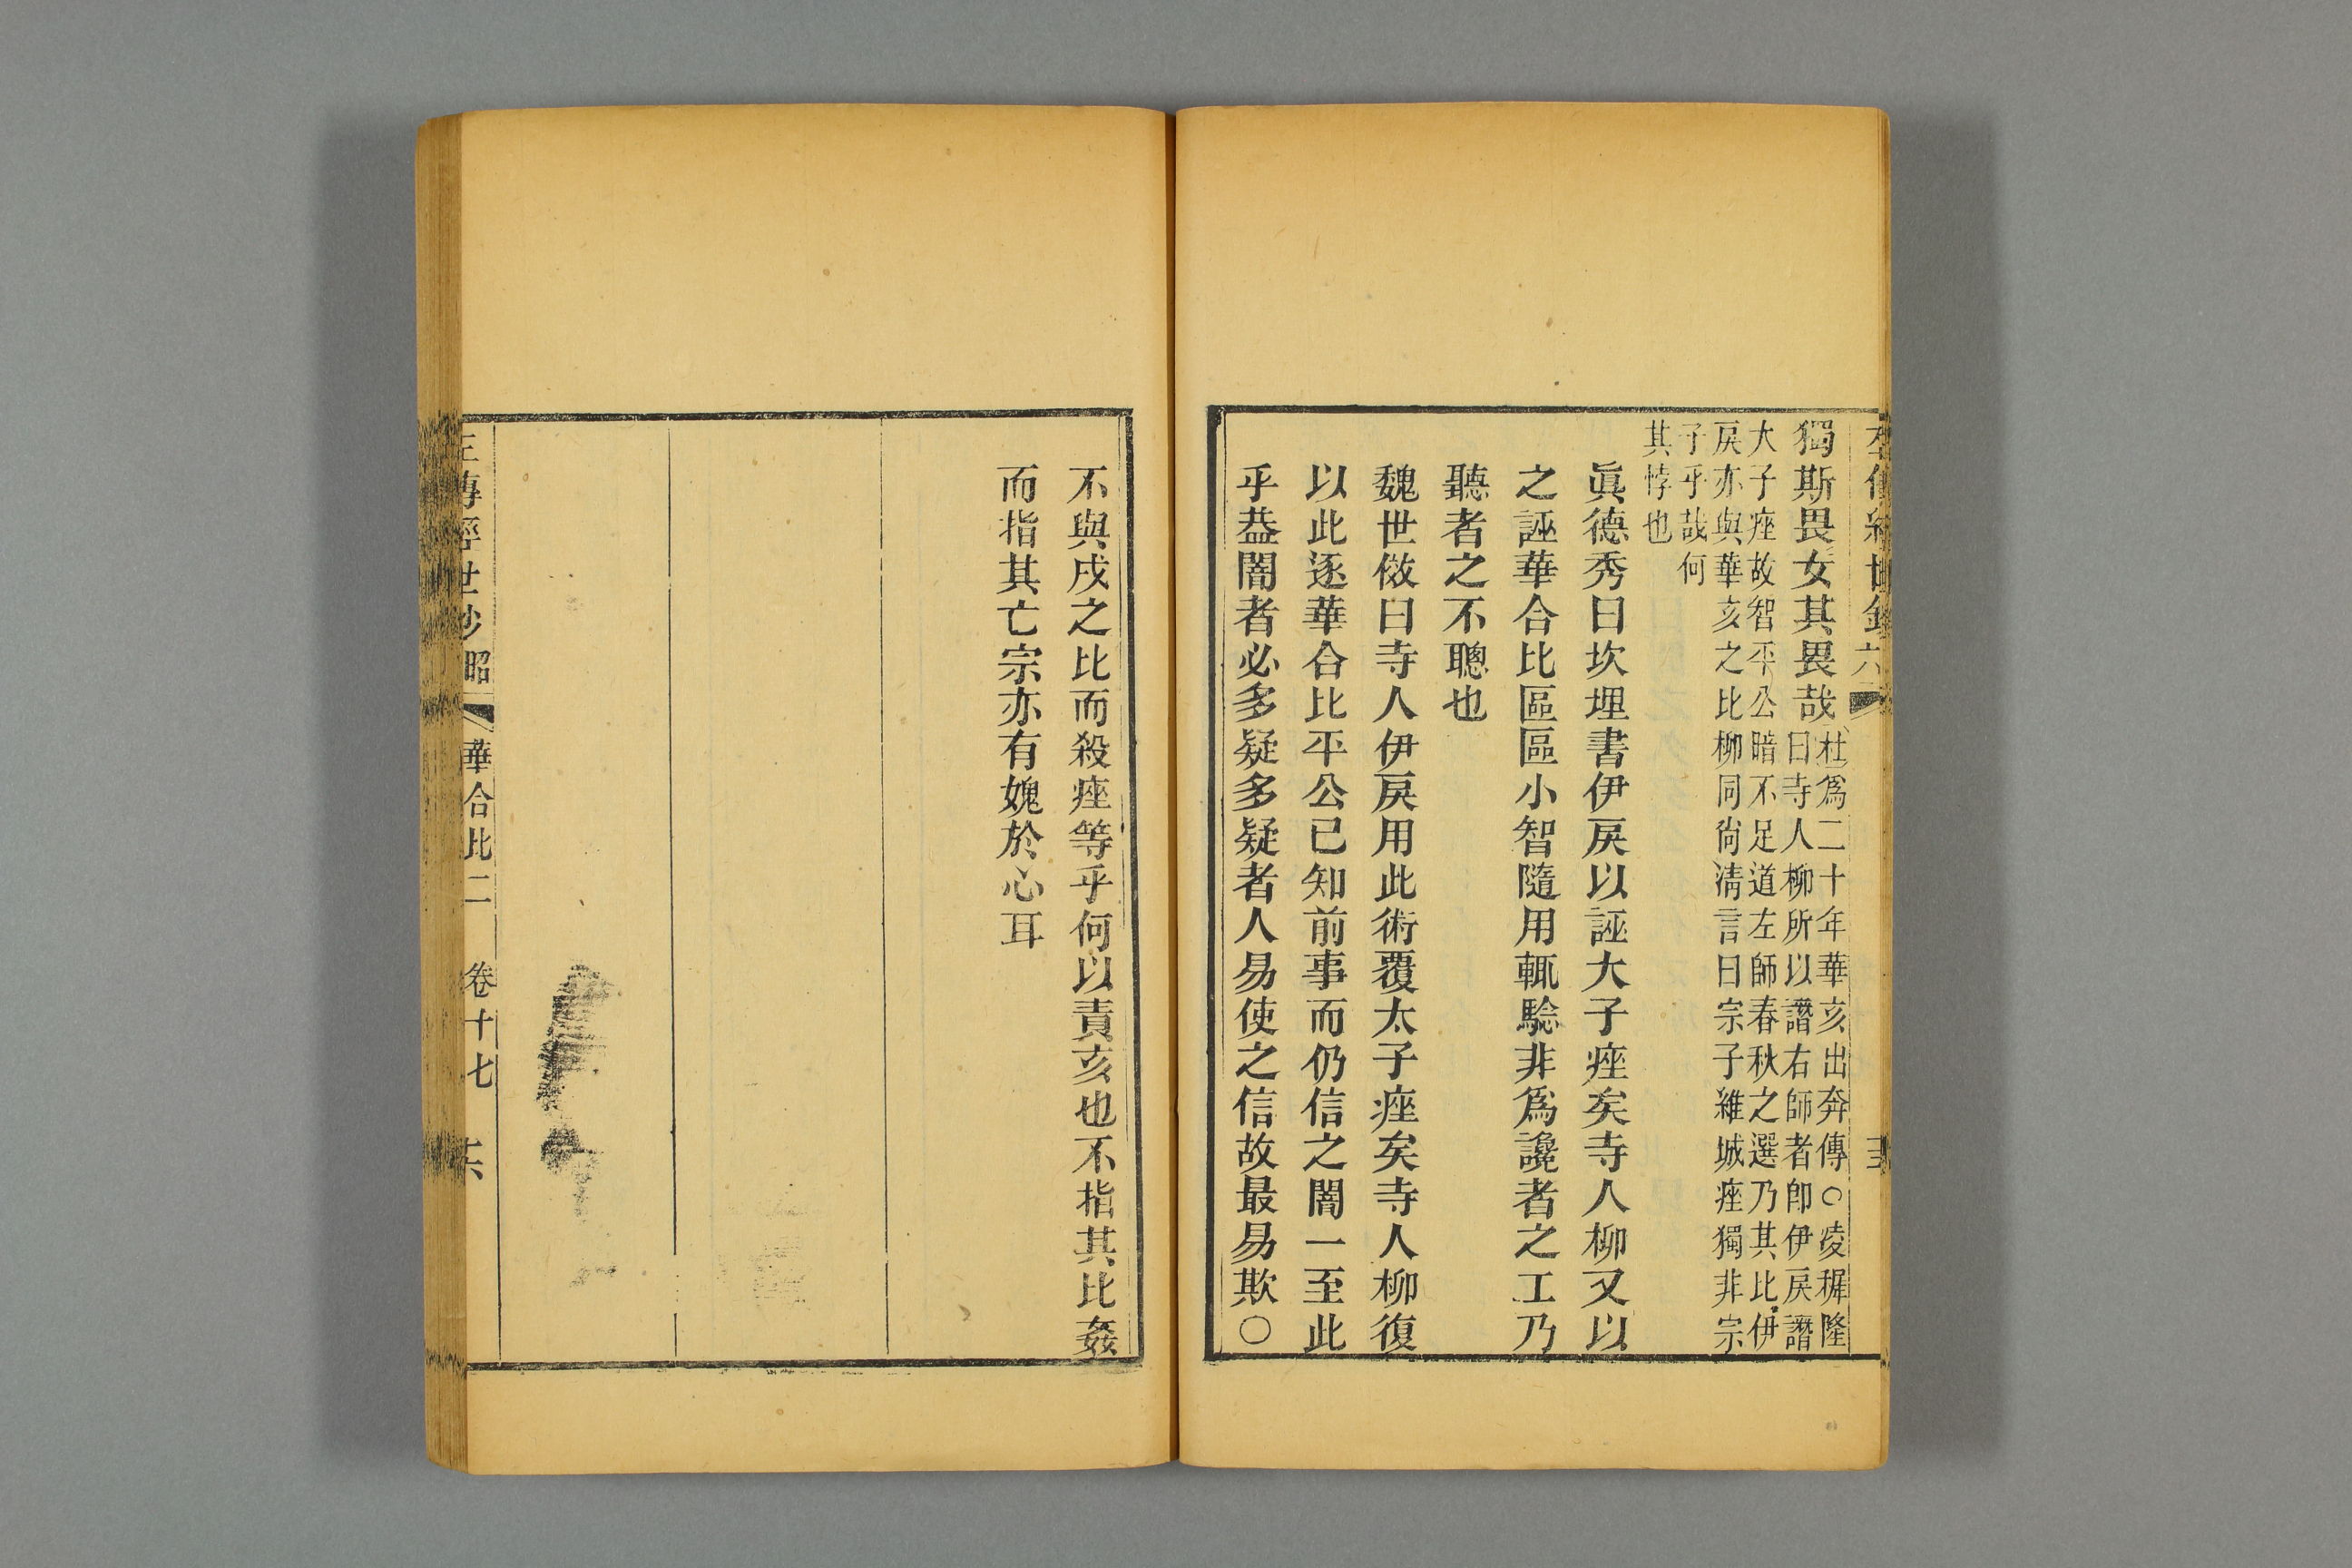 獨斯畏女其畏哉
杜爲二十年華亥出奔傳○凌稺隆
曰寺人柳所以譖右師者卽伊戾譖
大子痤故智平公暗不足道左師春秋之選乃其比伊
戾亦與華亥之比柳同尙淸言曰宗子維城痤獨非宗
子乎哉何
其悖也
眞德秀曰坎埋書伊戾以誣大子痤矣寺人柳又以
之誣華合比區區小智隨用輒驗非爲讒者之工乃
聽者之不聰也
魏世傚曰寺人伊戾用此術覆太子痤矣寺人柳復
以此逐華合比平公已知前事而仍信之闇一至此
乎葢闇者必多疑多疑者人易使之信故最易欺○
不與戌之比而殺痤等乎何以責亥也不指其比姦
而指其亡宗亦有媿於心耳
傳經世鈔 昭 華合比二 卷十七